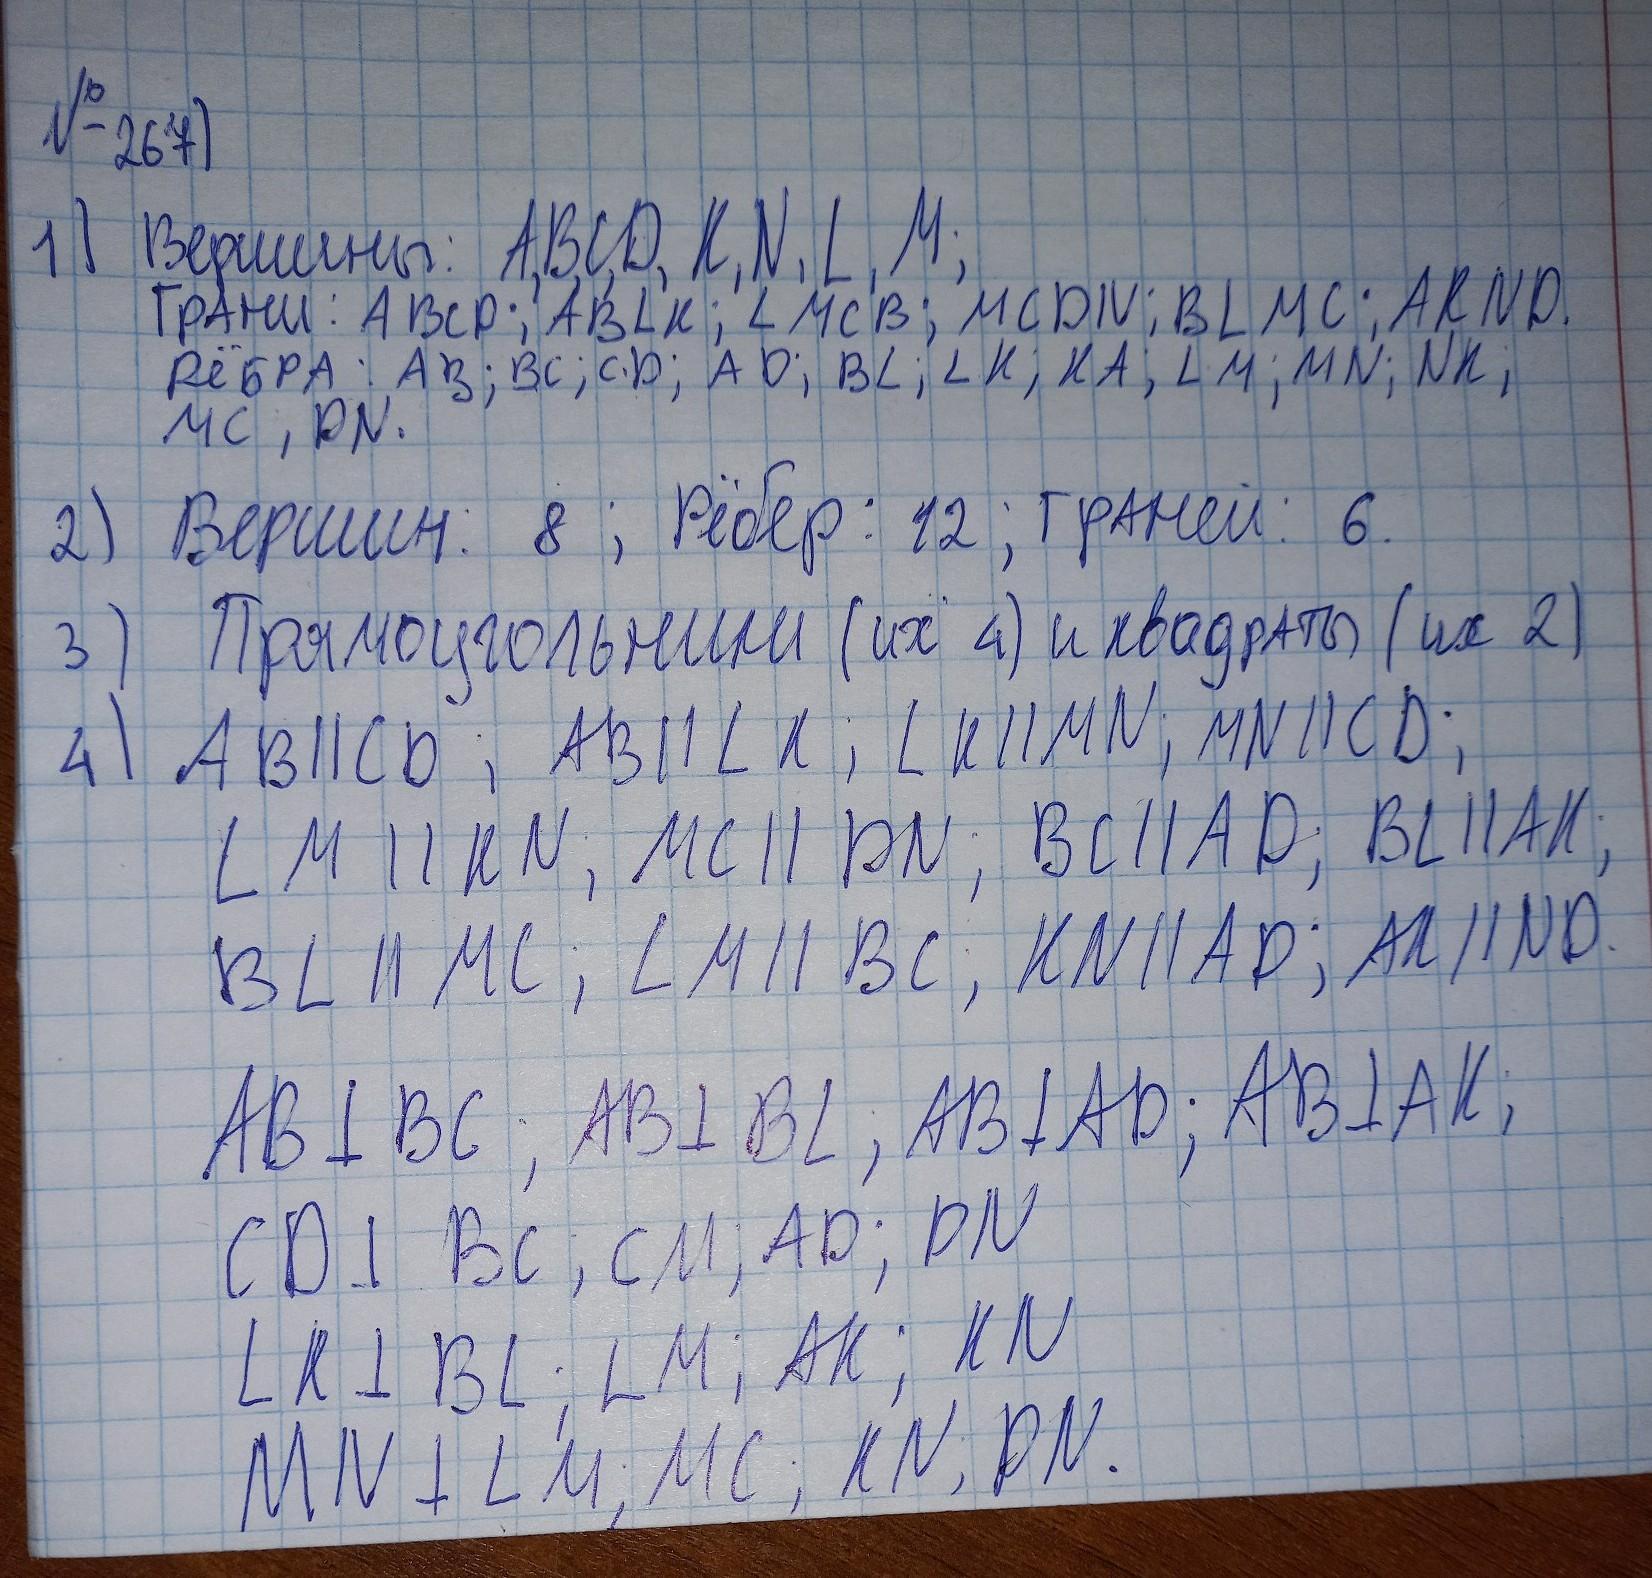 № 267)
1) Вершины: A, B, C, D, K, N, L, M;
Грани: ABCD; ABLK; LMCB; MCDN; BLMC; AKND.
Рёбра: AB; BC; CD; AD; BL; LK; KA; LM; MN; NK;
MC, DN.
2) Вершин: 8; Рёбер: 12; граней: 6.
3) Прямоугольники (их 4) и квадраты (их 2)
4) AB||CD; AB||LK; LK||MN; MN||CD;
LM||KN; MC||DN; BC||AD; BL||AK;
BL||MC; LM||BC; KN||AD; AK||ND.
AB⊥BC; AB⊥BL; AB⊥AD; AB⊥AK;
CD⊥ BC; CM; AD; DN
LK⊥ BL; LM; AK; KN
MN⊥LM; MC; KN; DN.